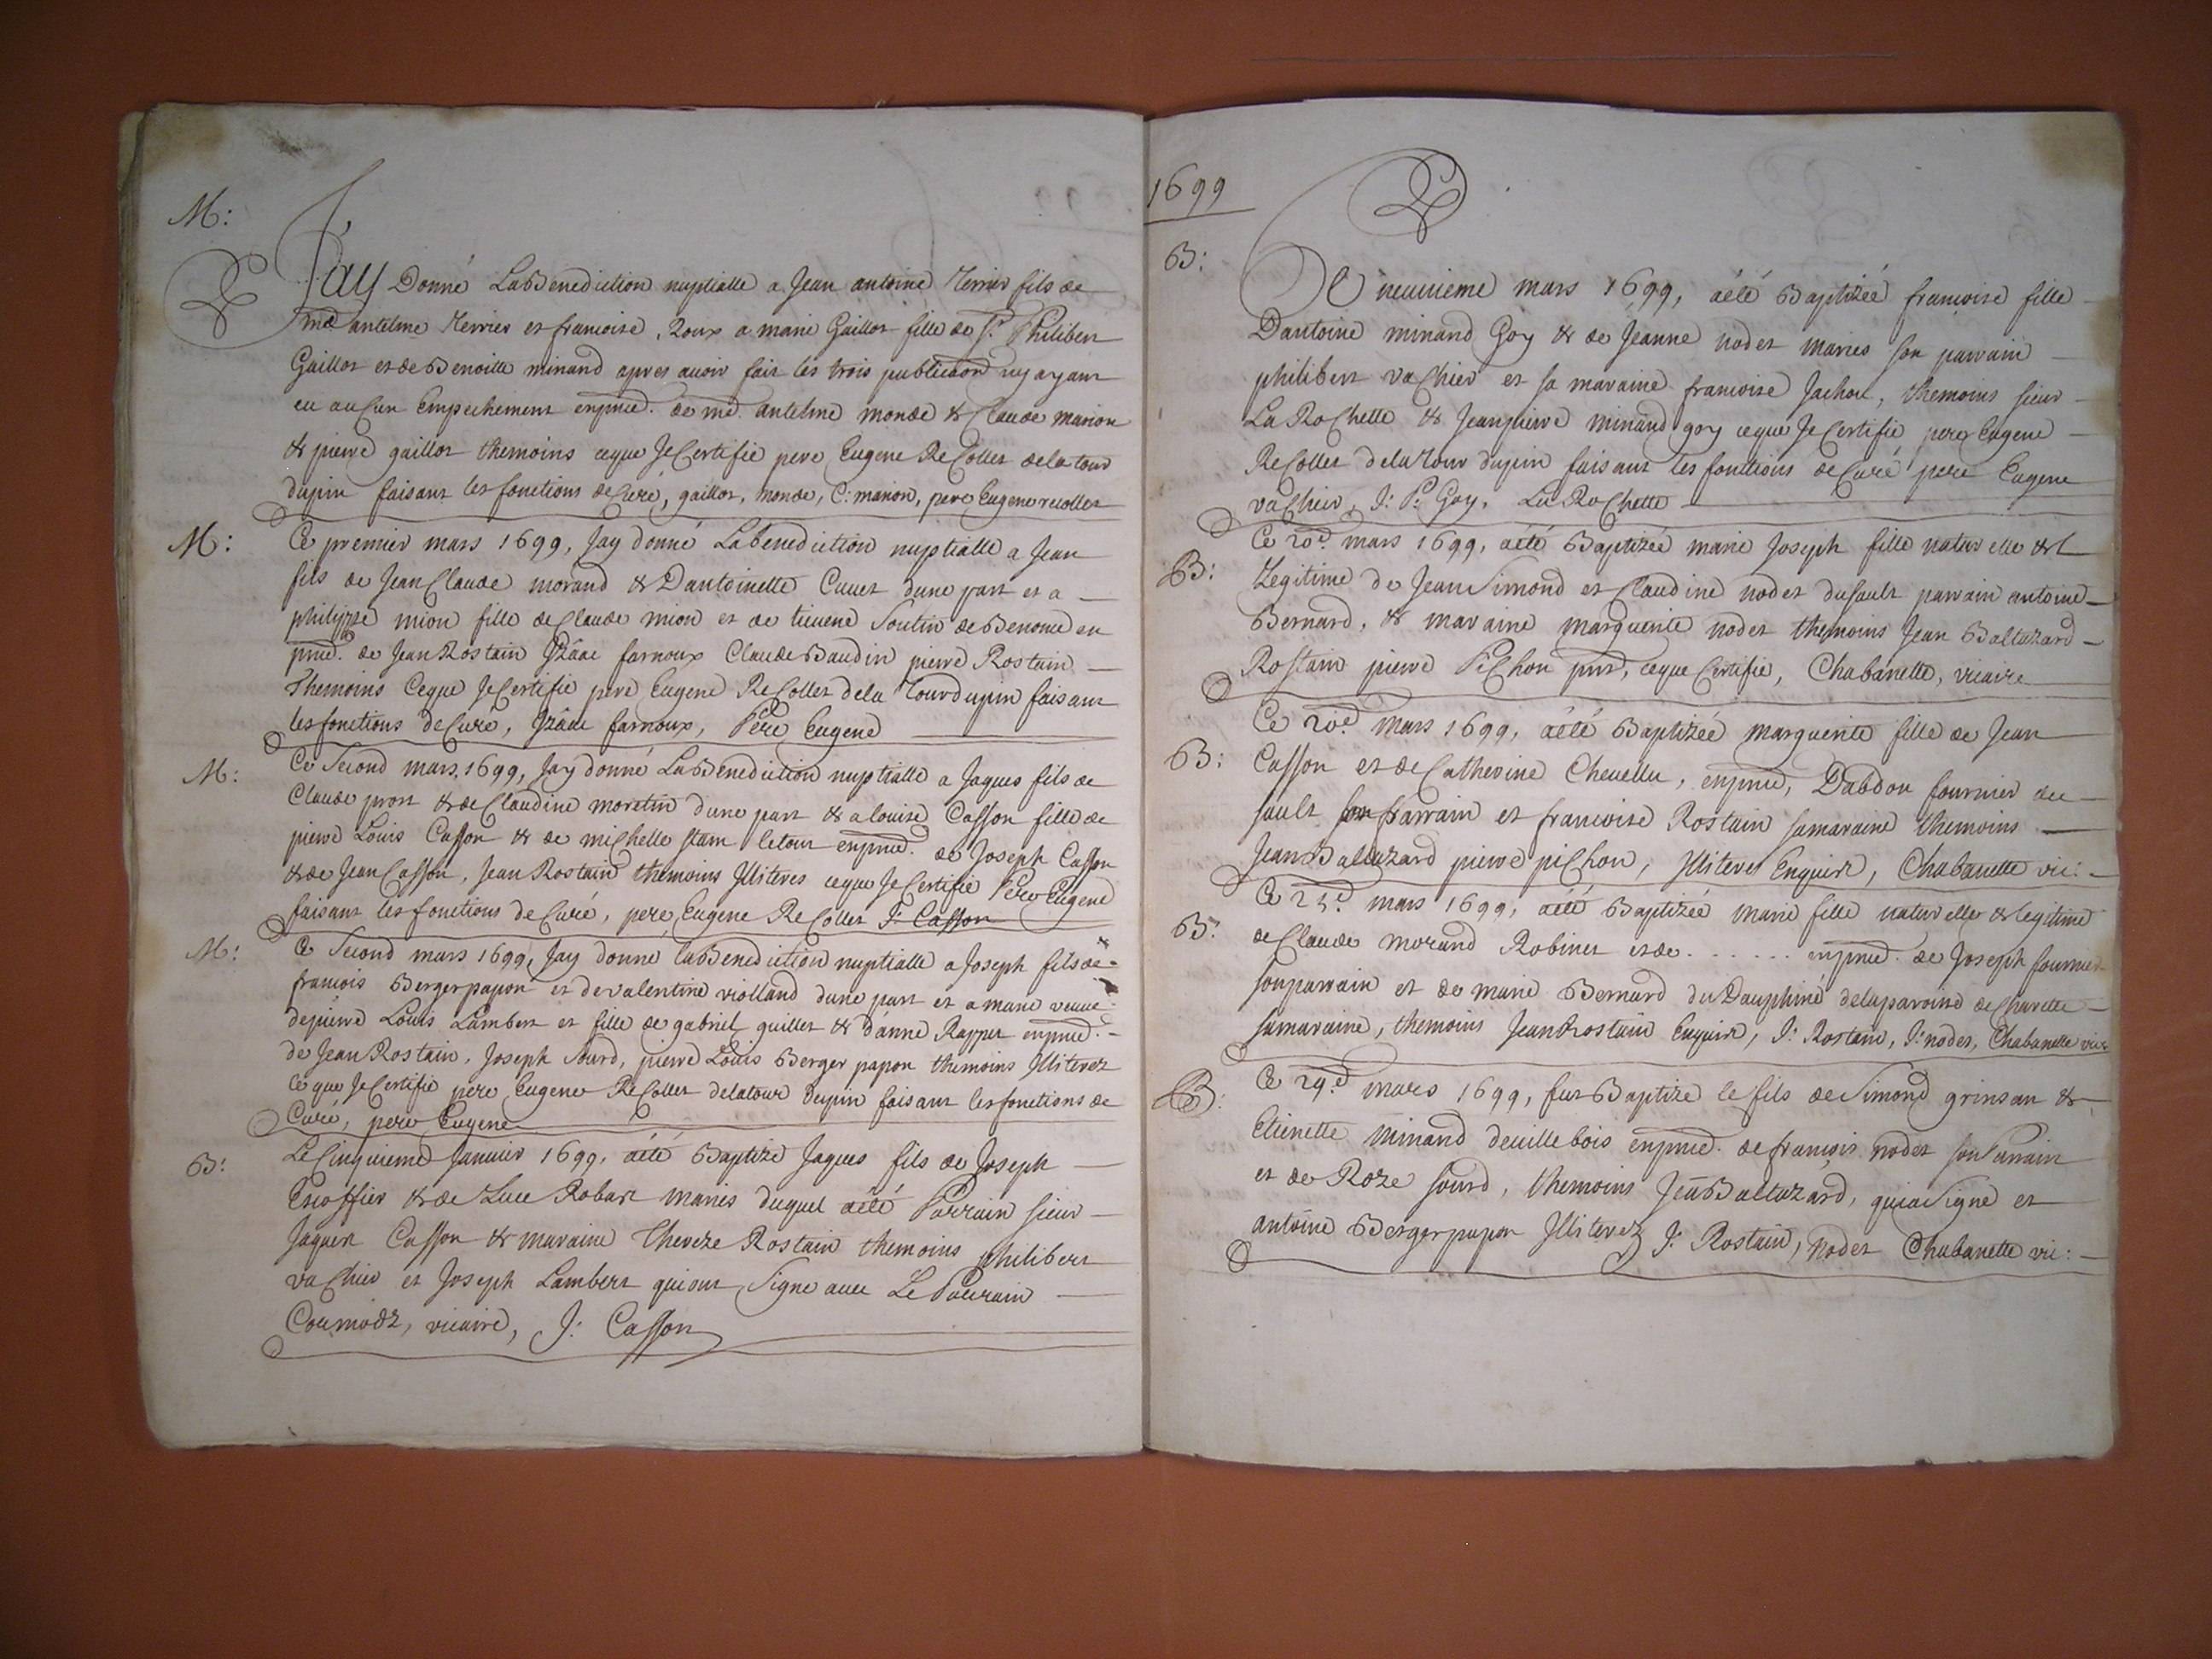 M:
Jáy Donné LaBenediction nuptialle a Jean antoine fils de
md antelme et francoise Roux a marie Gaillot fille de Sr. Philibert
Gaillot et de Benoitte minand apres auoir fait les trois publicaõn ny ayant
eu auCun Empechement enprñce. de me. antelme monde & Claude marion
& pierre gaillot themoins ceque JeCertifie pere Eugene ReCollet delatour
dupin faisant les fonctions deCuré, gaillot, monde, C: marion, pere Eugene recollet
M:
Ce premier mars 1699, Jay donné Labenediction nuptialle a Jean
fils de JeanClaude morand & Dantoinette Cuuet dune part et a
philippe mion fille deClaude mion et de Soutin de Benonce en
prñce. de JeanRostain Jzâac farnoux ClaudeBaudin pierre Rostain
Themoins Ceque JeCertifie pere Eugene ReCollet dela Tourdupin faisant
lesfonctions deCure, Jzâac farnoux, Pere Eugene
M:
Ce Second mars, 1699, Jay donné LaBenediction nuptialle a Jaques fils de
Claude prost & deClaudine moretin dune part & a louise Casson fille de
pierre Louis Casson & de miChelle letour enprñce. de Joseph Casson
& de Jean Casson, Jean Rostain themoins Jlliteres ceque JeCertifie Pere Eugene
faisant les fonctions deCuré, pere Eugene ReCollet J: Casson
M:
Ce Second mars 1699, Jay donné laBenediction nuptialle a Joseph fils de
francois Bergerpapon et devalentine violland dune part et a marie veuue
depierre Louis Lambert et fille de gabriel guillet & d'anne Rappet enprñce.
de JeanRostain, Joseph Sourd, pierre Louis Berger papon themoins Jlliterez
Ce que JeCertifie pere Eugene ReCollet delatour dupin faisant lesfonctions de
Curé, pere Eugene
B:
LeCinquieme Januier 1699, aété Baptizé Jaques fils de Joseph
Escoffier & de Luce Robart mariés duquel aété Parrain sieur
Jaques Casson & maraine Thereze Rostain themoins philibert
vaChier et Joseph Lambert quiont Signe auec LeParrain
vicaire, J: Casson
1699
B:
Ce neuuieme mars 1699, aété Baptizée francoise fille
Dantoine minand Goy & de Jeanne nodet maries son parrain
philibert vaChier et sa maraine francoise Jachou, themoins sieur
LaRoChette & Jeanpierre minand goy ceque JeCertifie pere Eugene
ReCollet delatour dupin faisant les fonctions deCuré pere Eugene
vaChier, J: P: Goy, LaRoChette
B:
Ce 20e. mars 1699, aété Baptizée marie Joseph fille naturelle &
Legitime de JeanSimond et Claudine nodet dusault parrain antoine
Bernard, & maraine marguerite nodet themoins Jean Baltazard
Rostain pierre PiChon prñs, ceque Certifie, Chabanette, vicaire
B:
Ce 20e. mars 1699, aété Baptizée marguerite fille de Jean
Casson et deCatherine Cheuellu, enprñce, Dabdon fournier du
sault son parrain et francoise Rostain samaraine themoins
JeanBaltazard pierre piChon, Jlliteres Enquir, Chabanette vic:
B:
Ce 25e. mars 1699, aété Baptizée marie fille naturelle & legitime
deClaude morand Robinet et de . . . . . . enprñce. de Joseph fournier
sonparrain et de marie Bernard du Dauphiné delaparoisse deCharette
samaraine, themoins JeanRostain Enquir, J: Rostain, J: nodet, Chabanette vic:
B:
Ce 29e. mars 1699, fut Baptize le fils de Simond grinsan &
Etienette minand deuillebois enprñce. de francois nodet sonParrain
et de Roze sourd, themoins JeãBaltazárd, quiaSigne et
antoine Bergerpapon Jlliterez J: Rostain, nodet Chabanette vic: